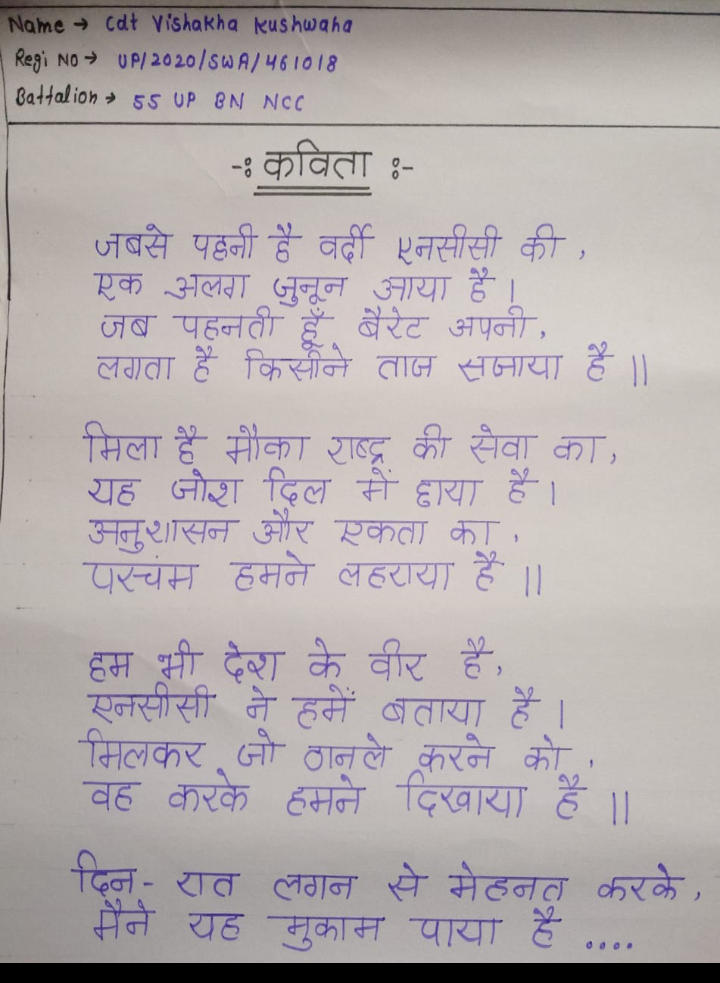 Name → Cdt Vishakha Kushwaha
Regi No → UP/2020/SWA/461018
Battalion → 55 UP BN NCC
-: कविता :-
जबसे पहनी है वर्दी एनसीसी की,
एक अलग जुनून आया है।
जब पहनती हूँ बैरेट अपनी,
लगता है किसीने ताज सजाया है॥
मिला है मौका राष्ट्र की सेवा का,
यह जोश दिल में छाया है।
अनुशासन और एकता का,
परचंम हमने लहराया है॥
हम भी देश के वीर है,
एनसीसी ने हमें बताया है।
मिलकर जो ठानले करने को,
वह करके हमने दिखाया है॥
दिन-रात लगन से मेहनत करके,
मैने यह मुकाम पाया है....